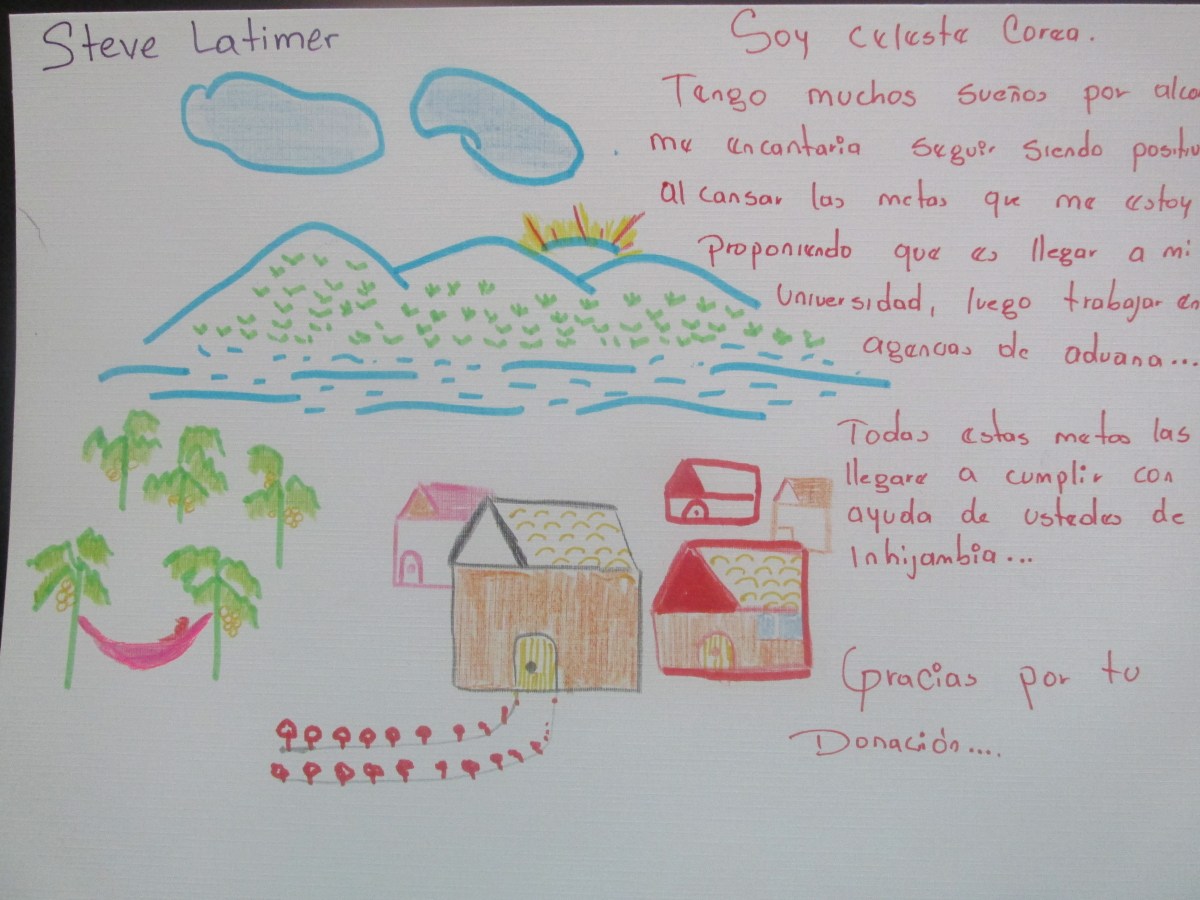 Steve Latimer
Soy celeste Corea.
Tengo muchos sueños por alca
me encantaria seguir siendo positiv
alcansar las metas que me estoy
proponiendo que es llegar a mi
Universidad, luego trabajar en
agencias de aduana...
Todas estas metas las
llegare a cumplir con
ayuda de ustedes de
Inhijambia...
Gracias por tu
Donación....